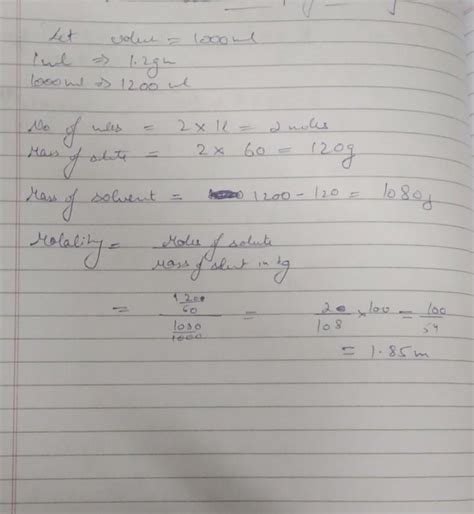 Let volume = 1000ml
1ml ⇒ 1.2gm
1000ml ⇒ 1200 ml
No of moles = 2 x 1L = 2 moles
Mass of solute = 2 x 60 = 120g
Mass of solvent = 1200 - 120 = 1080g
Molality = Moles of solute
Mass of solvent in kg
= 120/60 / 1080/1000 = 20/108 x 100 = 100/54
= 1.85m